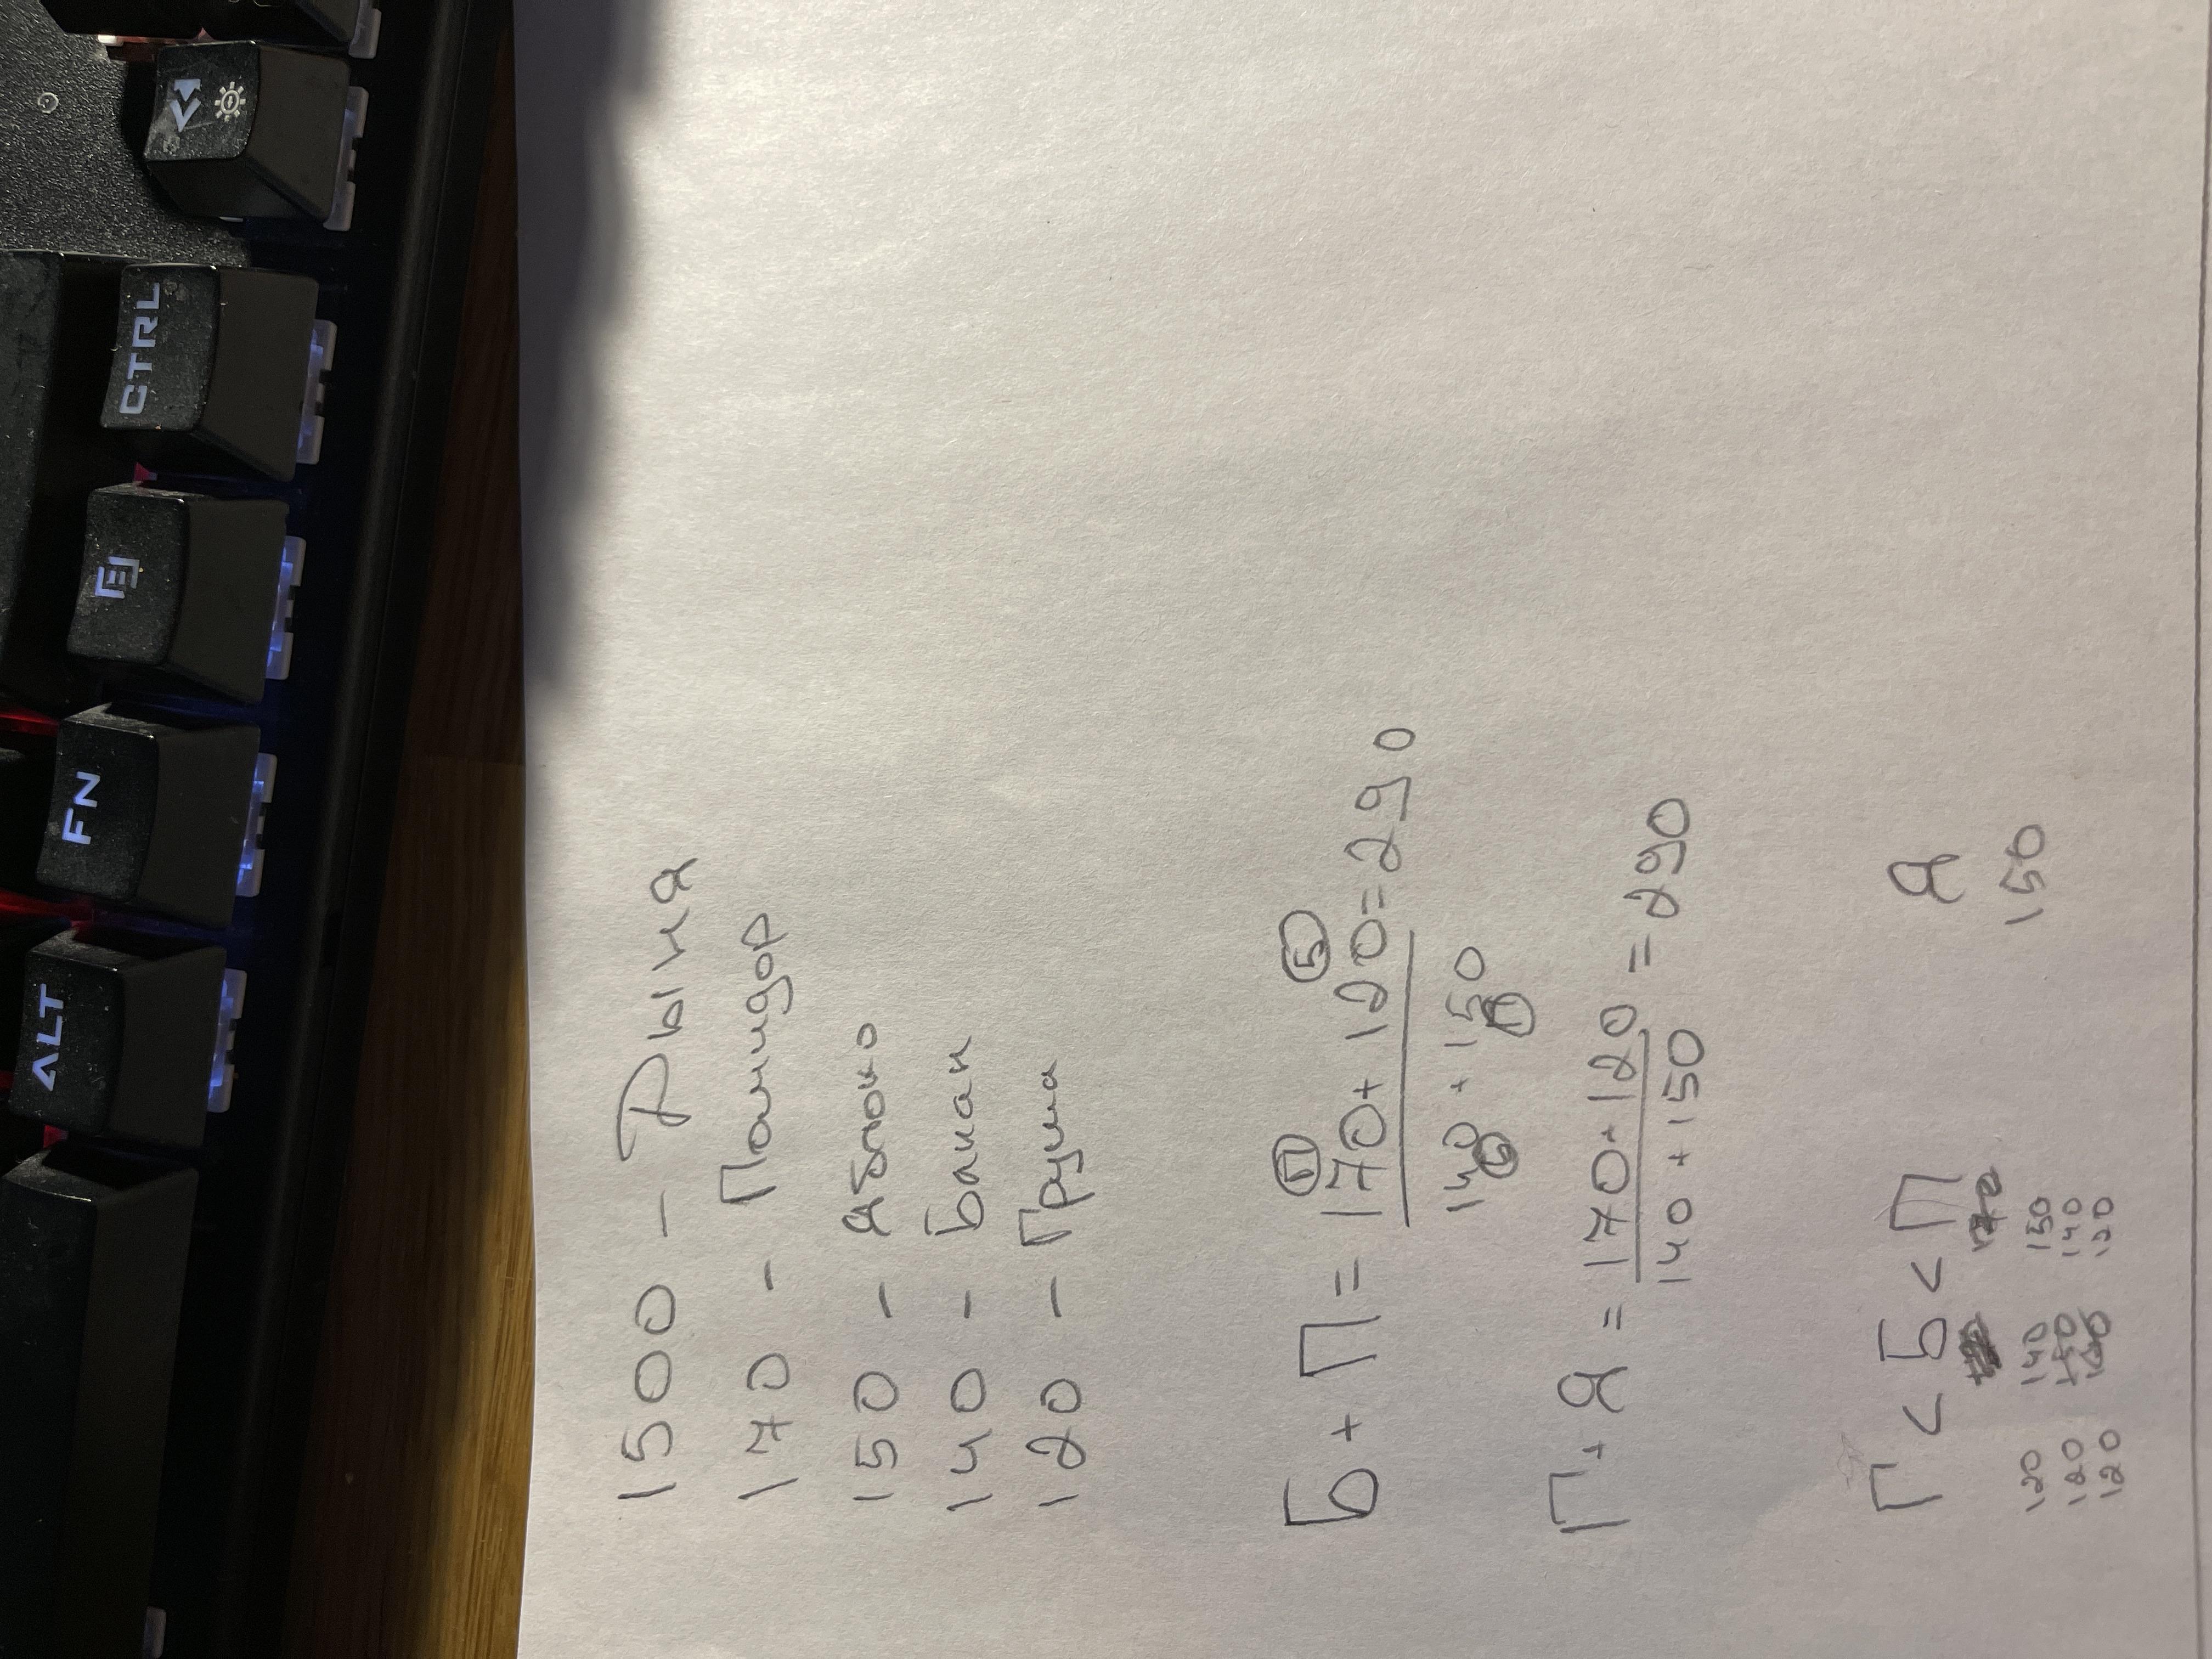 1500 - Дыня
170 - Помидор
150 - Яблоко
140 - Банан
120 - Груша
П Б
Б + П = 170 + 120 = 290
140 + 150
Б П
Г + Я = 170 + 120 = 290
140 + 150
Г < Б < П Я
120 140 150 150
120 150 140
120 140 120
ALT
FN
CTRL